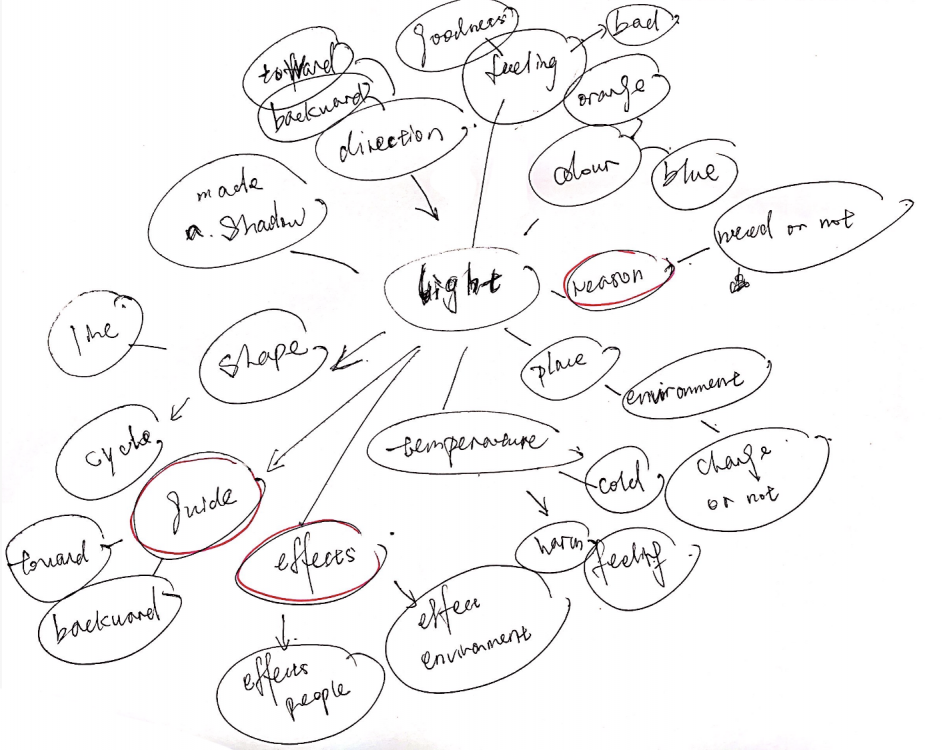 goodness
bad
feeling
toward
backward
orange
direction
colour
blue
made
a. shadow
need or not
light
reason
line
shape
place
environment
temperature
cycle
cold
change
or not
guide
effects
toward
feeling
backward
effect
environment
effects
people